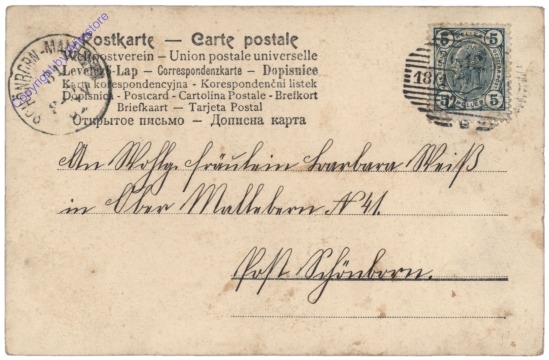 Postkarte — Carte postale
Weltpostverein - Union postale universelle
Levelező-Lap - Correspondenzkarte - Dopisnice
Karta korespondencyjna - Korespondenční listek
Dopisnica - Postcard - Cartolina Postale - Brefkort
Briefkaart - Tarjeta Postal
Открытое письмо — Дописна карта
5 5
5 5
18
SCHÖNBORN-MAL
An Wohlg. Fräulein Barbara Weiß
in Ober Mallebern N 41.
Post Schönborn.